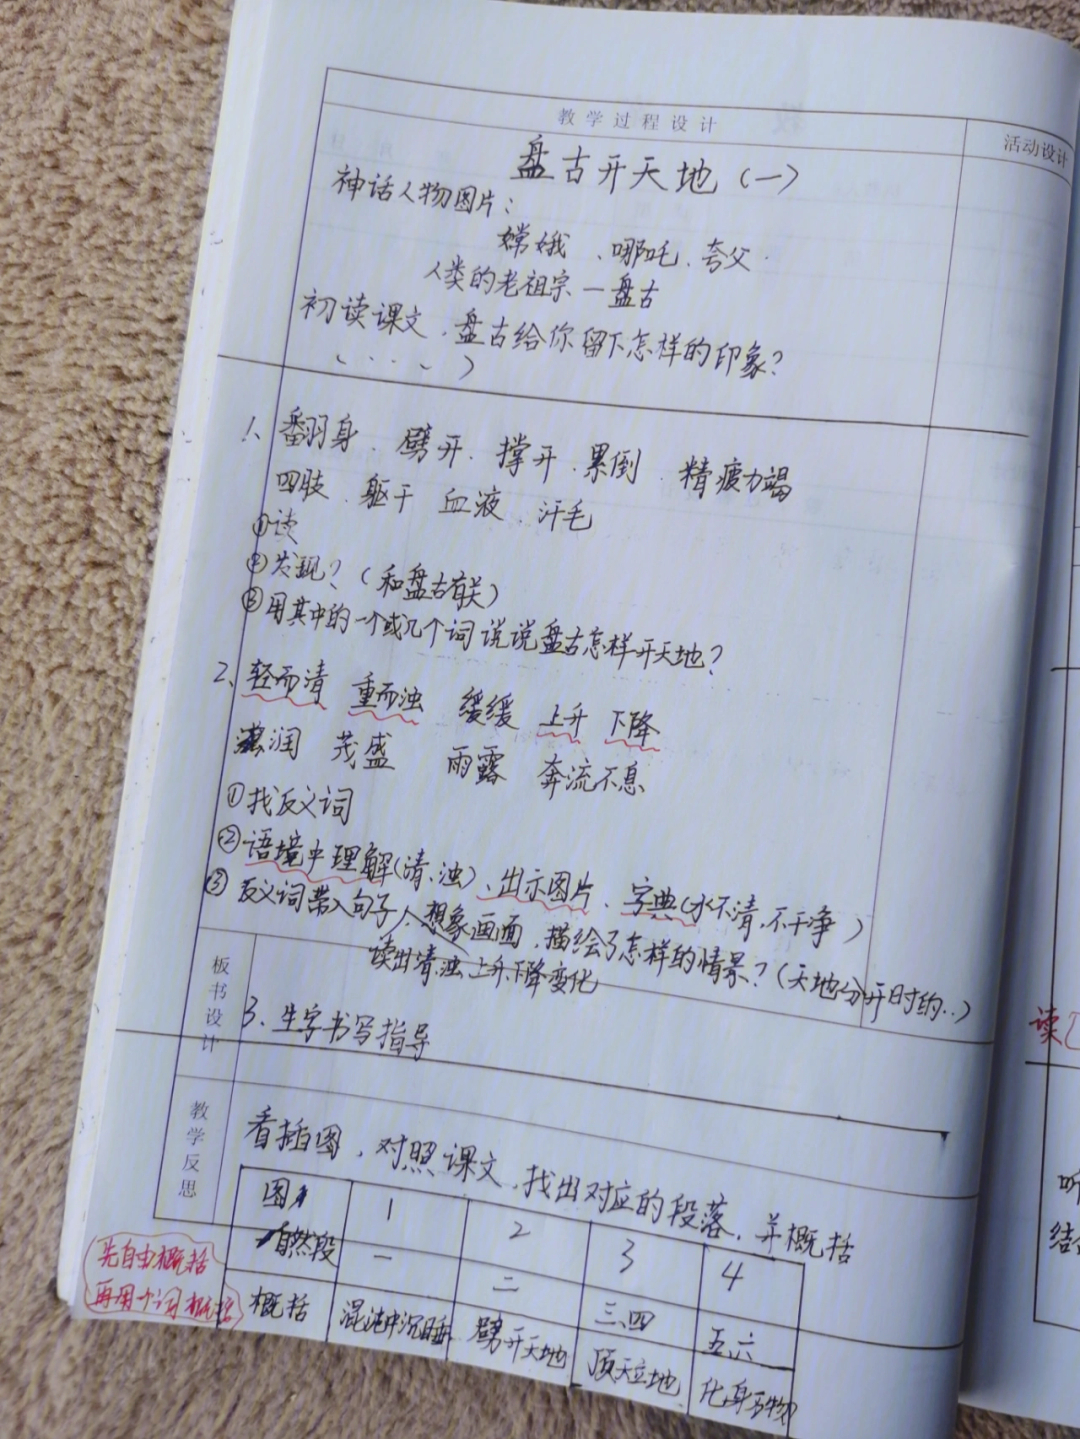 教学过程设计
活动设计
盘古开天地(一)
神话人物图片:
嫦娥、哪吒、夸父
人类的老祖宗—盘古
初读课文,盘古给你留下怎样的印象?
(、、、)
1、翻身、劈开、撑开、累倒、精疲力竭
四肢、躯干 血液、汗毛
①读
②发现?(和盘古有关)
③用其中的一个或几个词说说盘古怎样开天地?
2、轻而清 重而浊 缓缓 上升 下降
滋润 茂盛 雨露 奔流不息
①找反义词
②语境中理解(清、浊)、出示图片、字典(水不清,不干净)
③反义词带入句子,想象画面,描绘了怎样的情景?(天地分开时的..)
读出清浊上升下降变化
板书设计
3、生字书写指导
教学反思
看插图,对照课文,找出对应的段落,并概括
图 1 2 3 4
自然段 一 二 三、四 五、六
概括 混沌中沉睡 劈开天地 顶天立地 化身万物
先自由概括
再用个词概括
读
听
结